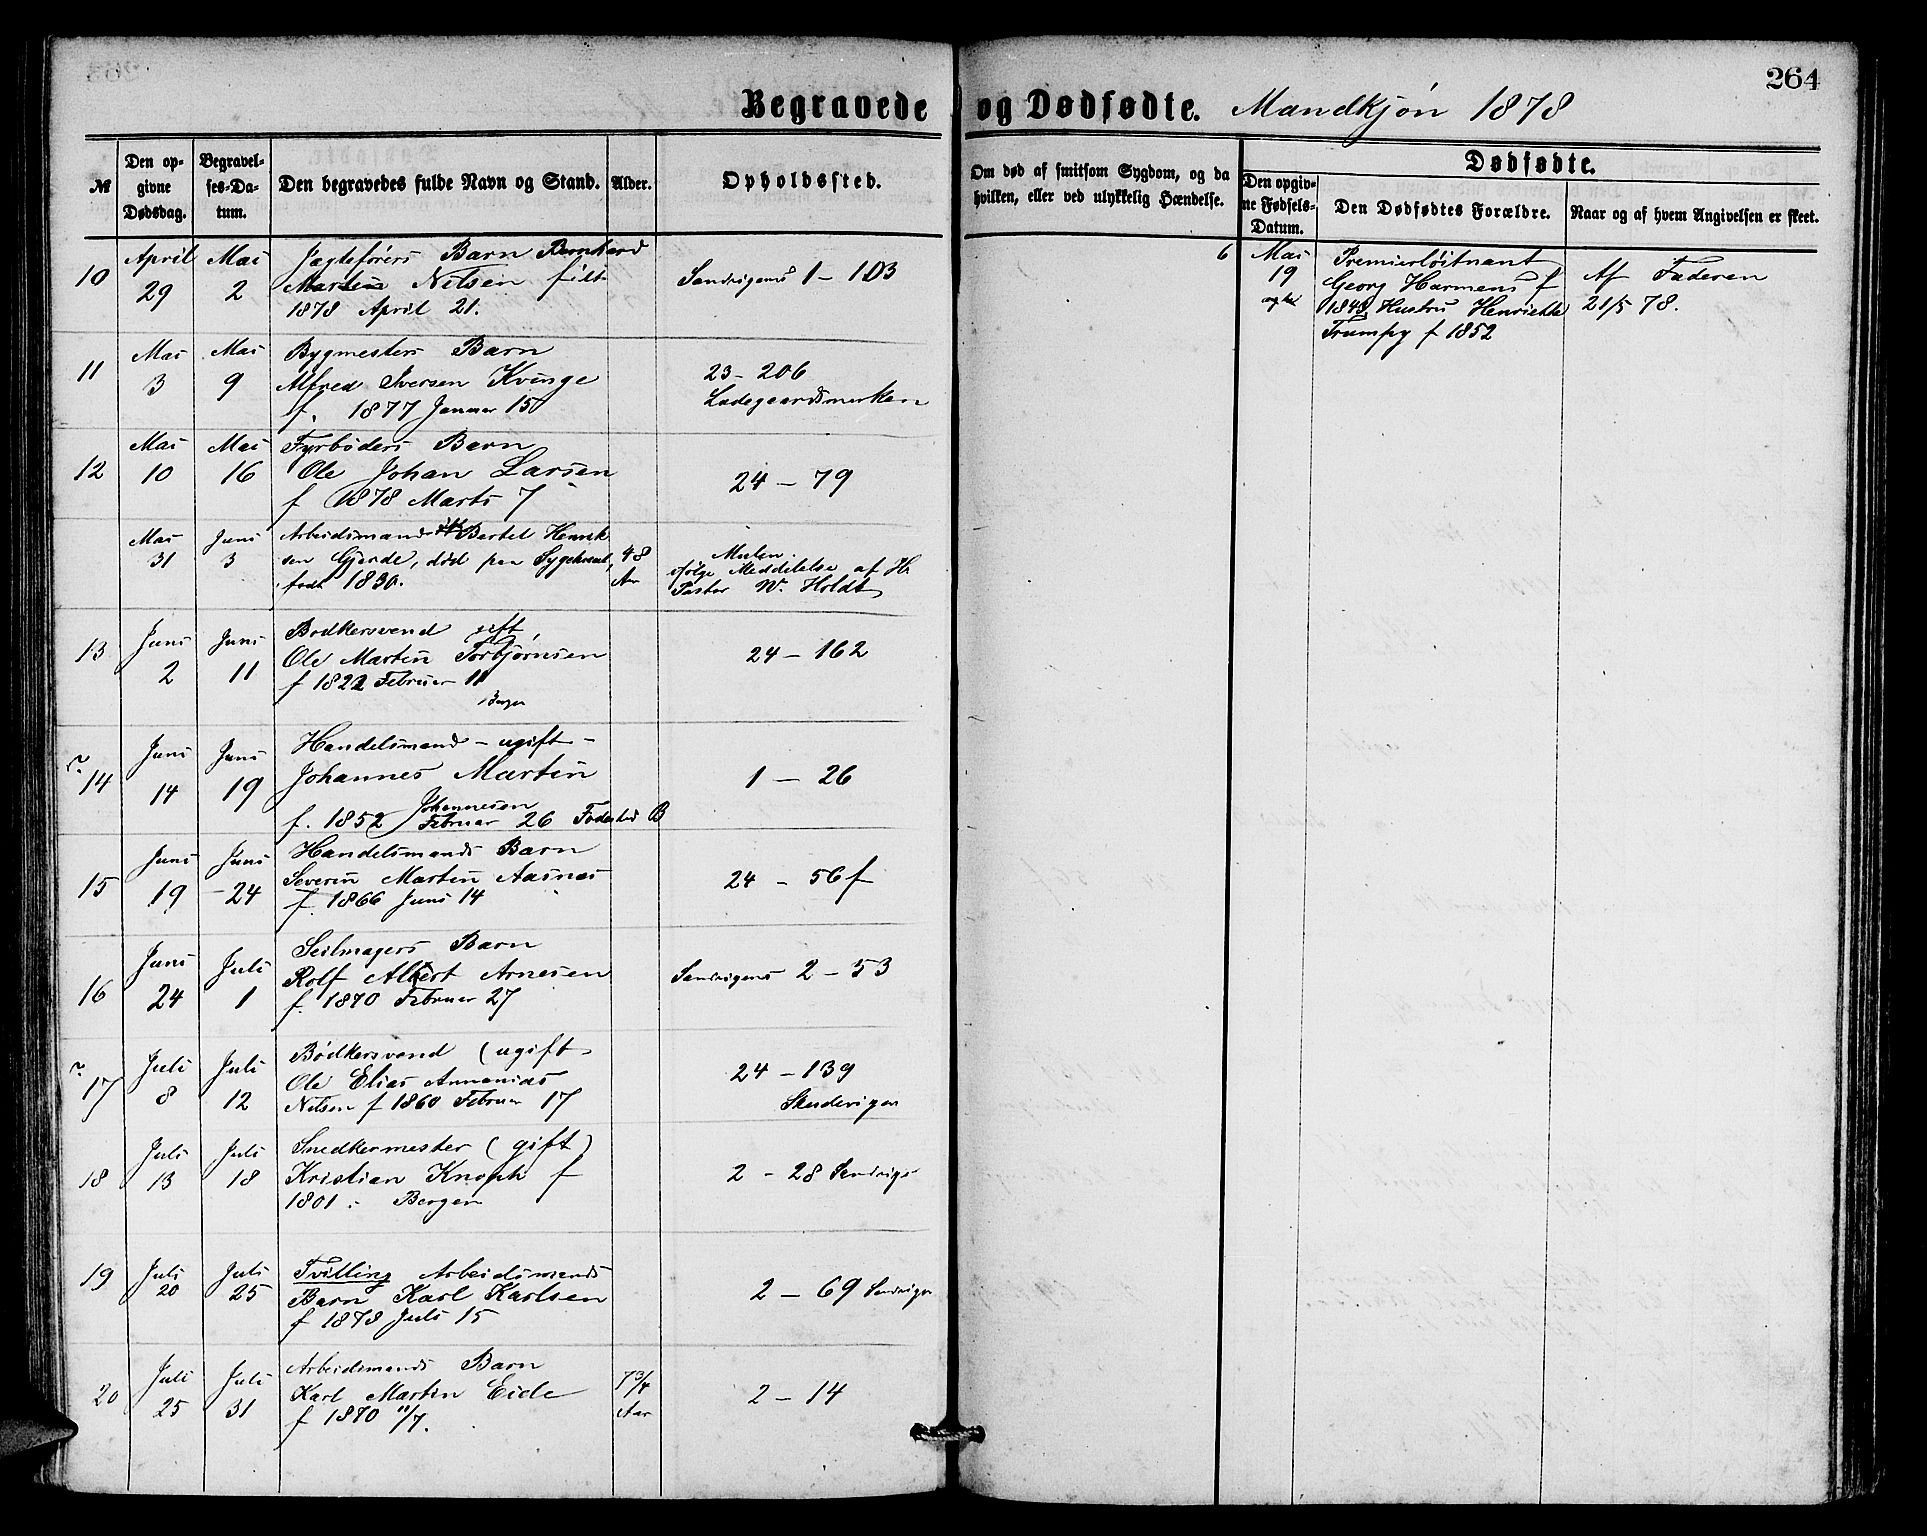 264
Begravede og Dødfødte. Mandkjøn 1878
№
Den opgivne Dødsdag.
Begravelses-Datum.
Den begravedes fulde Navn og Stand.
Alder.
Opholdssted.
Om død af smitsom Sygdom, og da hvilken, eller ved ulykkelig Hændelse.
Dødfødte.
Den opgivne Fødsels-Datum.
Den Dødfødtes Forældre.
Naar og af hvem Angivelsen er skeet.
10 April 29 Mai 2
Jagteførers Barn Bernhard
Martin Nilsen født
1878 April 21.
Sandvigens 1 - 103
6 Mai 19
Premierløitnant
Georg Harmens f
Hustru Henriette
Trumpy f 1852
Af Faderen
21/5 78.
11 Mai 3 Mai 9
Bygmesters Barn
Alfred Iversen Kvinge
f. 1877 Januar 15
23 - 206
Ladegaardsmarken
12 Mai 10 Mai 16
Fyrbøders Barn
Ole Johan Larsen
f 1878 Marts 7
24 - 79
Mai 31 Juni 3
Arbeidsmand Bertel Henrik
sen Gjerde, død paa
født 1830.
48 Aar
Mulen
ifølge Meddelelse af Hr
Pastor W. Holdt
13 Juni 2 Juni 11
Bødkersvend gift
Ole Martin Torbjørnsen
f 1822 Februar 11
Bergen
24 - 162
14 Juni 14 Juni 19
Handelsmand - ugift -
Johannes Martin
Johannesen
f. 1852 Februar 26 Fødested B
1 - 26
15 Juni 19 Juni 24
Handelsmands Barn
Severin Martin Aasnes
f. 1866 Juni 14
24 - 56f
16 Juni 24 Juli 1
Seilmagers Barn
Rolf Albert Arnesen
f. 1870 Februar 27
Sandvigens 2 - 53
17 Juli 8 Juli 12
Bødkersvend (ugift
Ole Elias Annanias
Nilsen f 1860 Februar 17
24 - 139
Skudevigen
18 Juli 13 Juli 18
Snedkermester (gift)
Kristian Knoph f
1801 : Bergen
2 - 28 Sandvigs
19 Juli 20 Juli 25
Tvilling Arbeidsmands
Barn Karl Karlsen
f 1878 Juli 15
2 - 69 Sandvigen
20 Juli 25 Juli 31
Arbeidsmands Barn
Karl Martin Eide
f 1870 11/7.
7 3/4 Aar
2 - 14